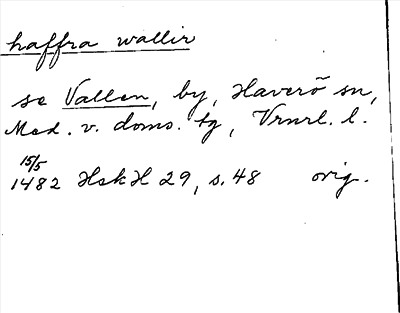 haffra wallir
se Vallen, by, Haverö sn,
Med. v. doms. tg, Vrnrl. l.
15/5
1482 HskH 29, s. 48 orig.